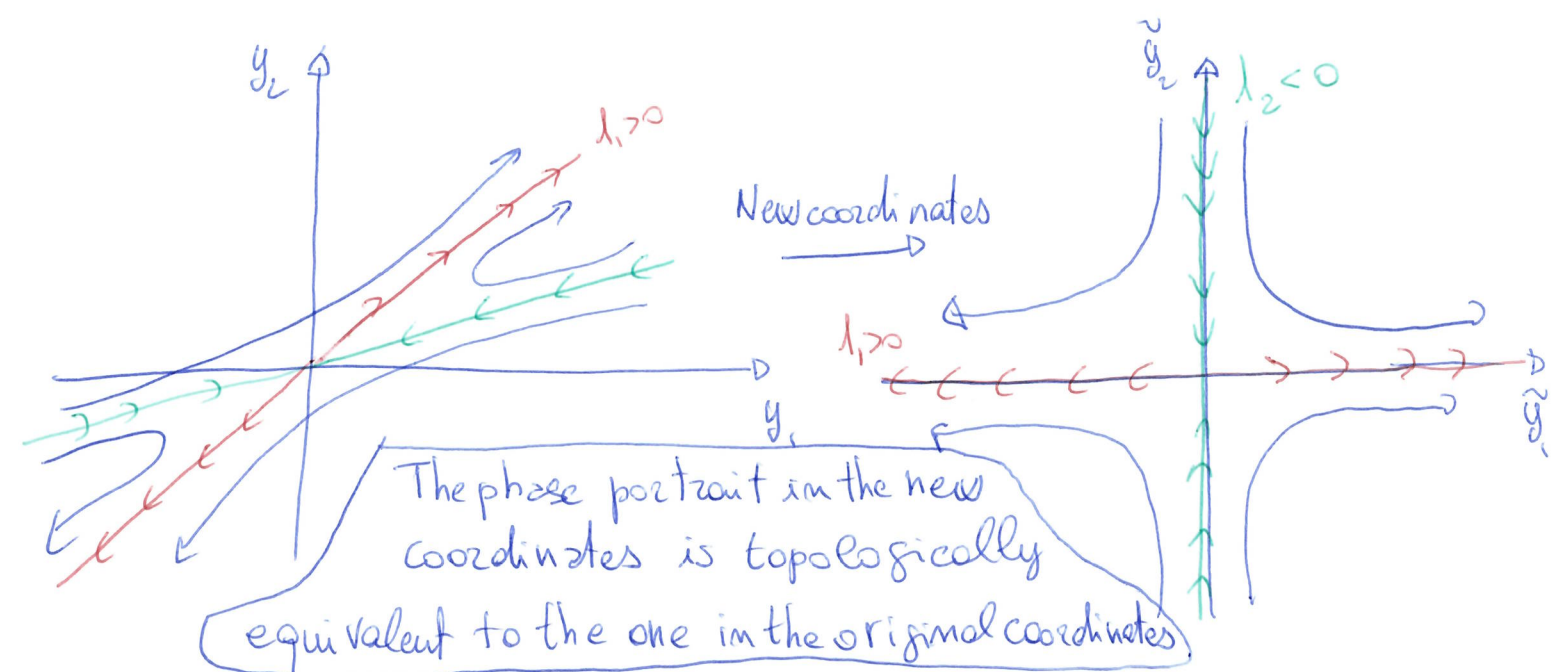 y₂
λ₁>0
y₁
New coordinates
ỹ₂
λ₂<0
λ₁>0
ỹ₁
The phase portrait in the new
coordinates is topologically
equivalent to the one in the original coordinates